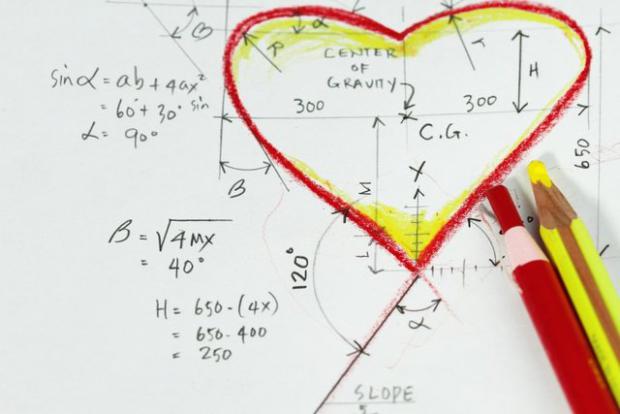 β α
R r
CENTER
OF
GRAVITY
H
sinα = ab + 4ax²
= 60° + 30° sin
α = 90°
300 300
C.G.
650
B M X
β = √4MX
= 40°
L
120°
H = 650 - (4x)
= 650 - 400
= 250
α
SLOPE